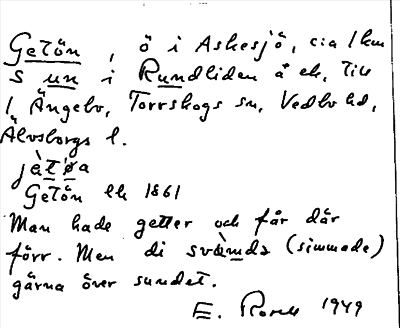 Getön, ö i Askesjö, cia 1 km
S un i Rundliden å ek. till
1 Ängebo, Torrskogs sn, Vedbo hd,
Älvsborgs l.
jètøa
Getön ek 1861
Man hade getter och får där
förr. Men di svàmda (simmade)
gärna över sundet.
E. 1949